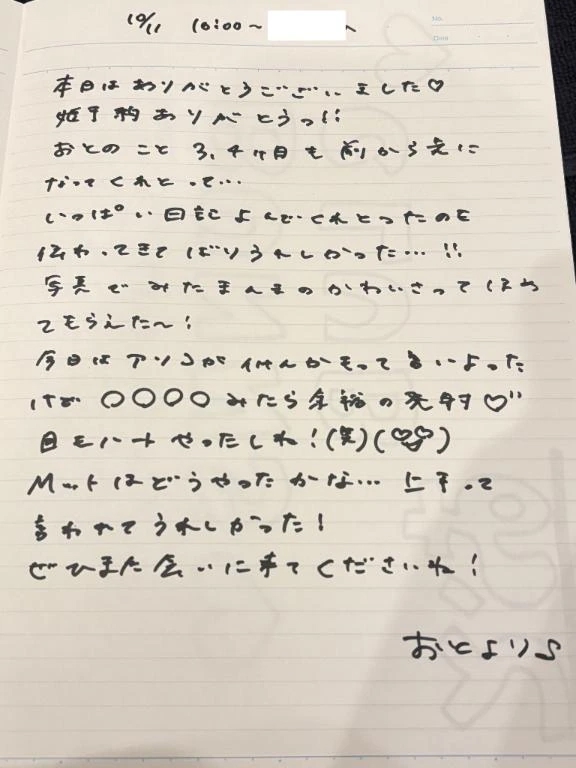 10/11 10:00～
No.
Date
本日はありがとうございました♡
姫予約ありがとうっ!!
おとのこと3,4ヶ月も前から気に
なってくれとって…
いっぱい日記よんでくれとったのも
伝わってきてばりうれしかった…!!
写真でみたまんまのかわいさってほめ
てもらえた～!
今日はアソコがけんかもって言いよった
けど〇〇〇〇みたら余裕の発射♡"
目もハートやったしね!(笑)(♡♡)
Mットはどうやったかな…上手って
言われてうれしかった!
ぜひまた会いに来てくださいね!
おとより♪